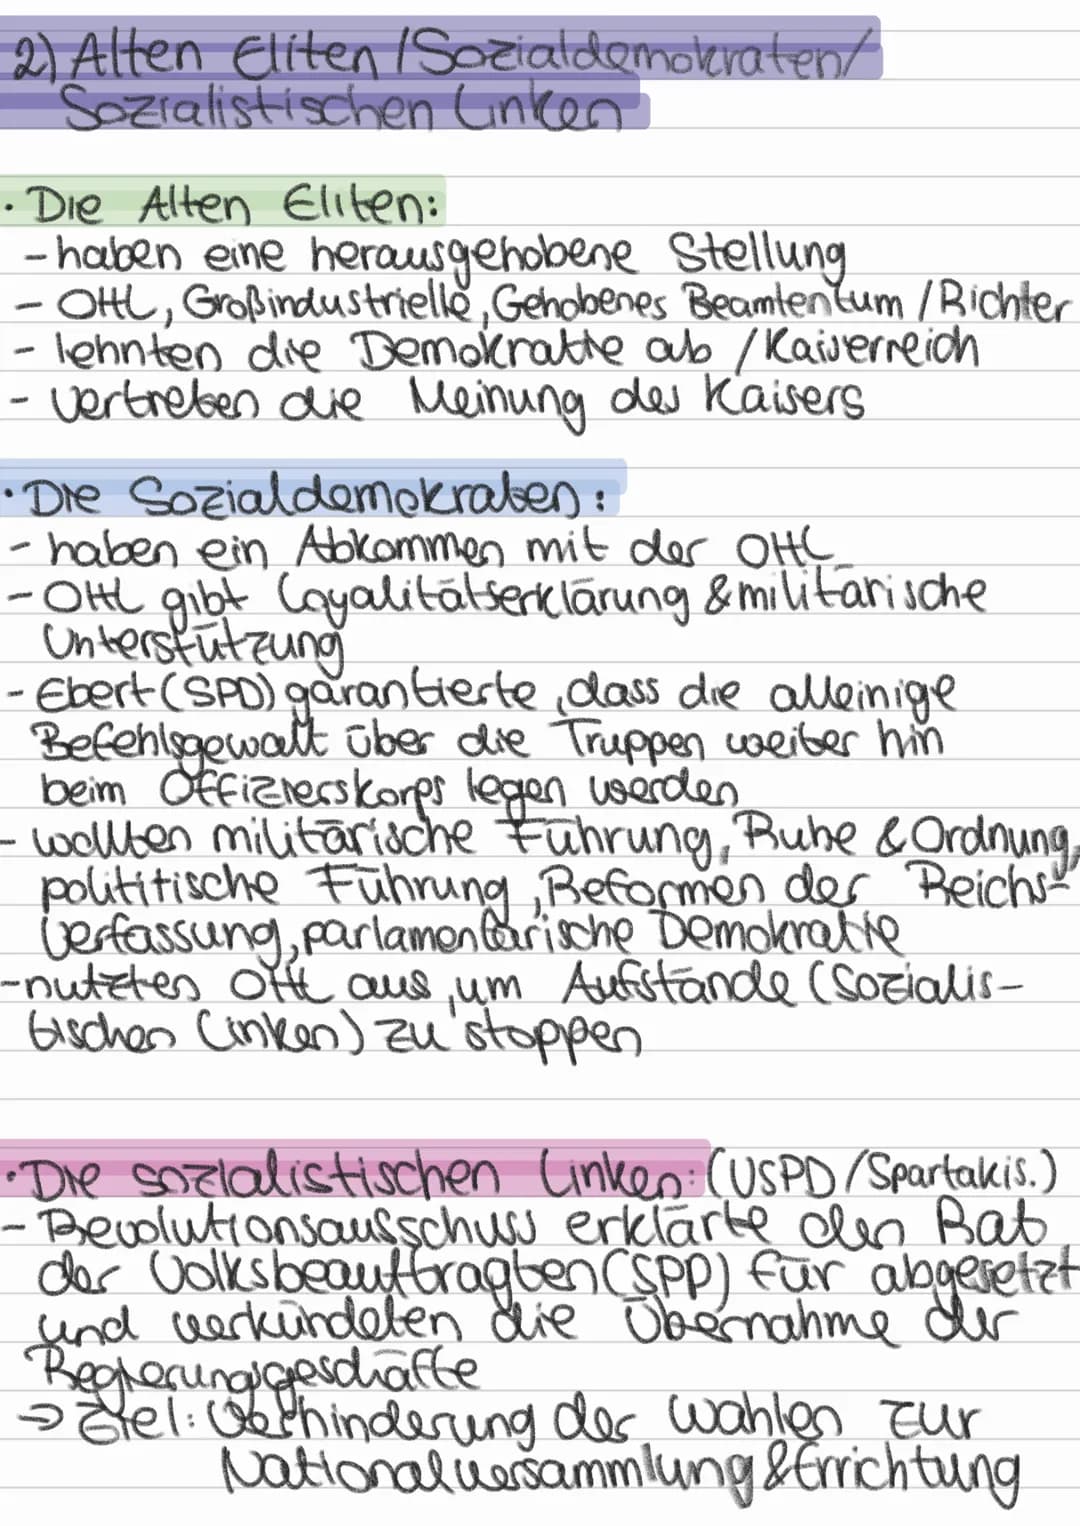 2) Alten Eliten / Sozialdemokraten/
Sozialistischen Linken
· Die Alten Eliten:
- haben eine herausgehobene Stellung
- OHL, Großindustrielle, Gehobenes Beamtentum / Richter
- lehnten die Demokratie ab / Kaiserreich
- vertreten die Meinung des Kaisers
· Die Sozialdemokraten:
- haben ein Abkommen mit der OHL
- OHL gibt Loyalitätserklärung & militärische
Unterstützung
- Ebert (SPD) garantierte, dass die alleinige
Befehlsgewalt über die Truppen weiter hin
beim Offizierskorps legen werden
- wollten militärische Führung, Ruhe & Ordnung,
polititische Führung, Reformen der Reichs-
verfassung, parlamentarische Demokratie
- nutzten OHL aus, um Aufstände (Sozialis-
tischen Linken) zu stoppen
· Die sozialistischen Linken: (USPD / Spartakis.)
- Revolutionsausschuss erklärte den Rat
der Volksbeauftragten (SPD) für abgesetzt
und verkündeten die Übernahme der
Regierungsgeschäfte
→ Ziel: Verhinderung der Wahlen zur
Nationalversammlung & Errichtung